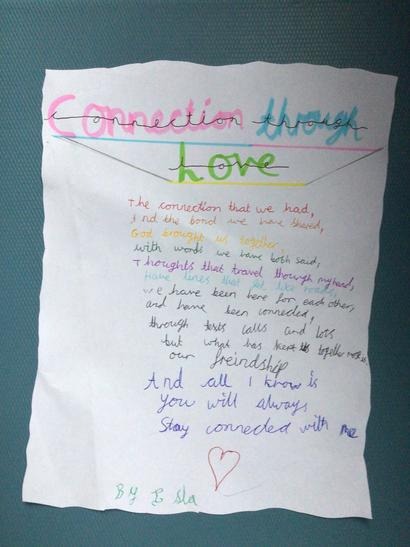 Connection through
Love
The connection that we had,
And the bond we have shared,
God brought us together,
with words we have both said,
Thoughts that travel through my head,
Have lines that like roads,
we have been here for each other,
and have been connected,
through texts calls and lots
but what has kept us together
our freindship
And all I know is
You will always
Stay connected with me
By